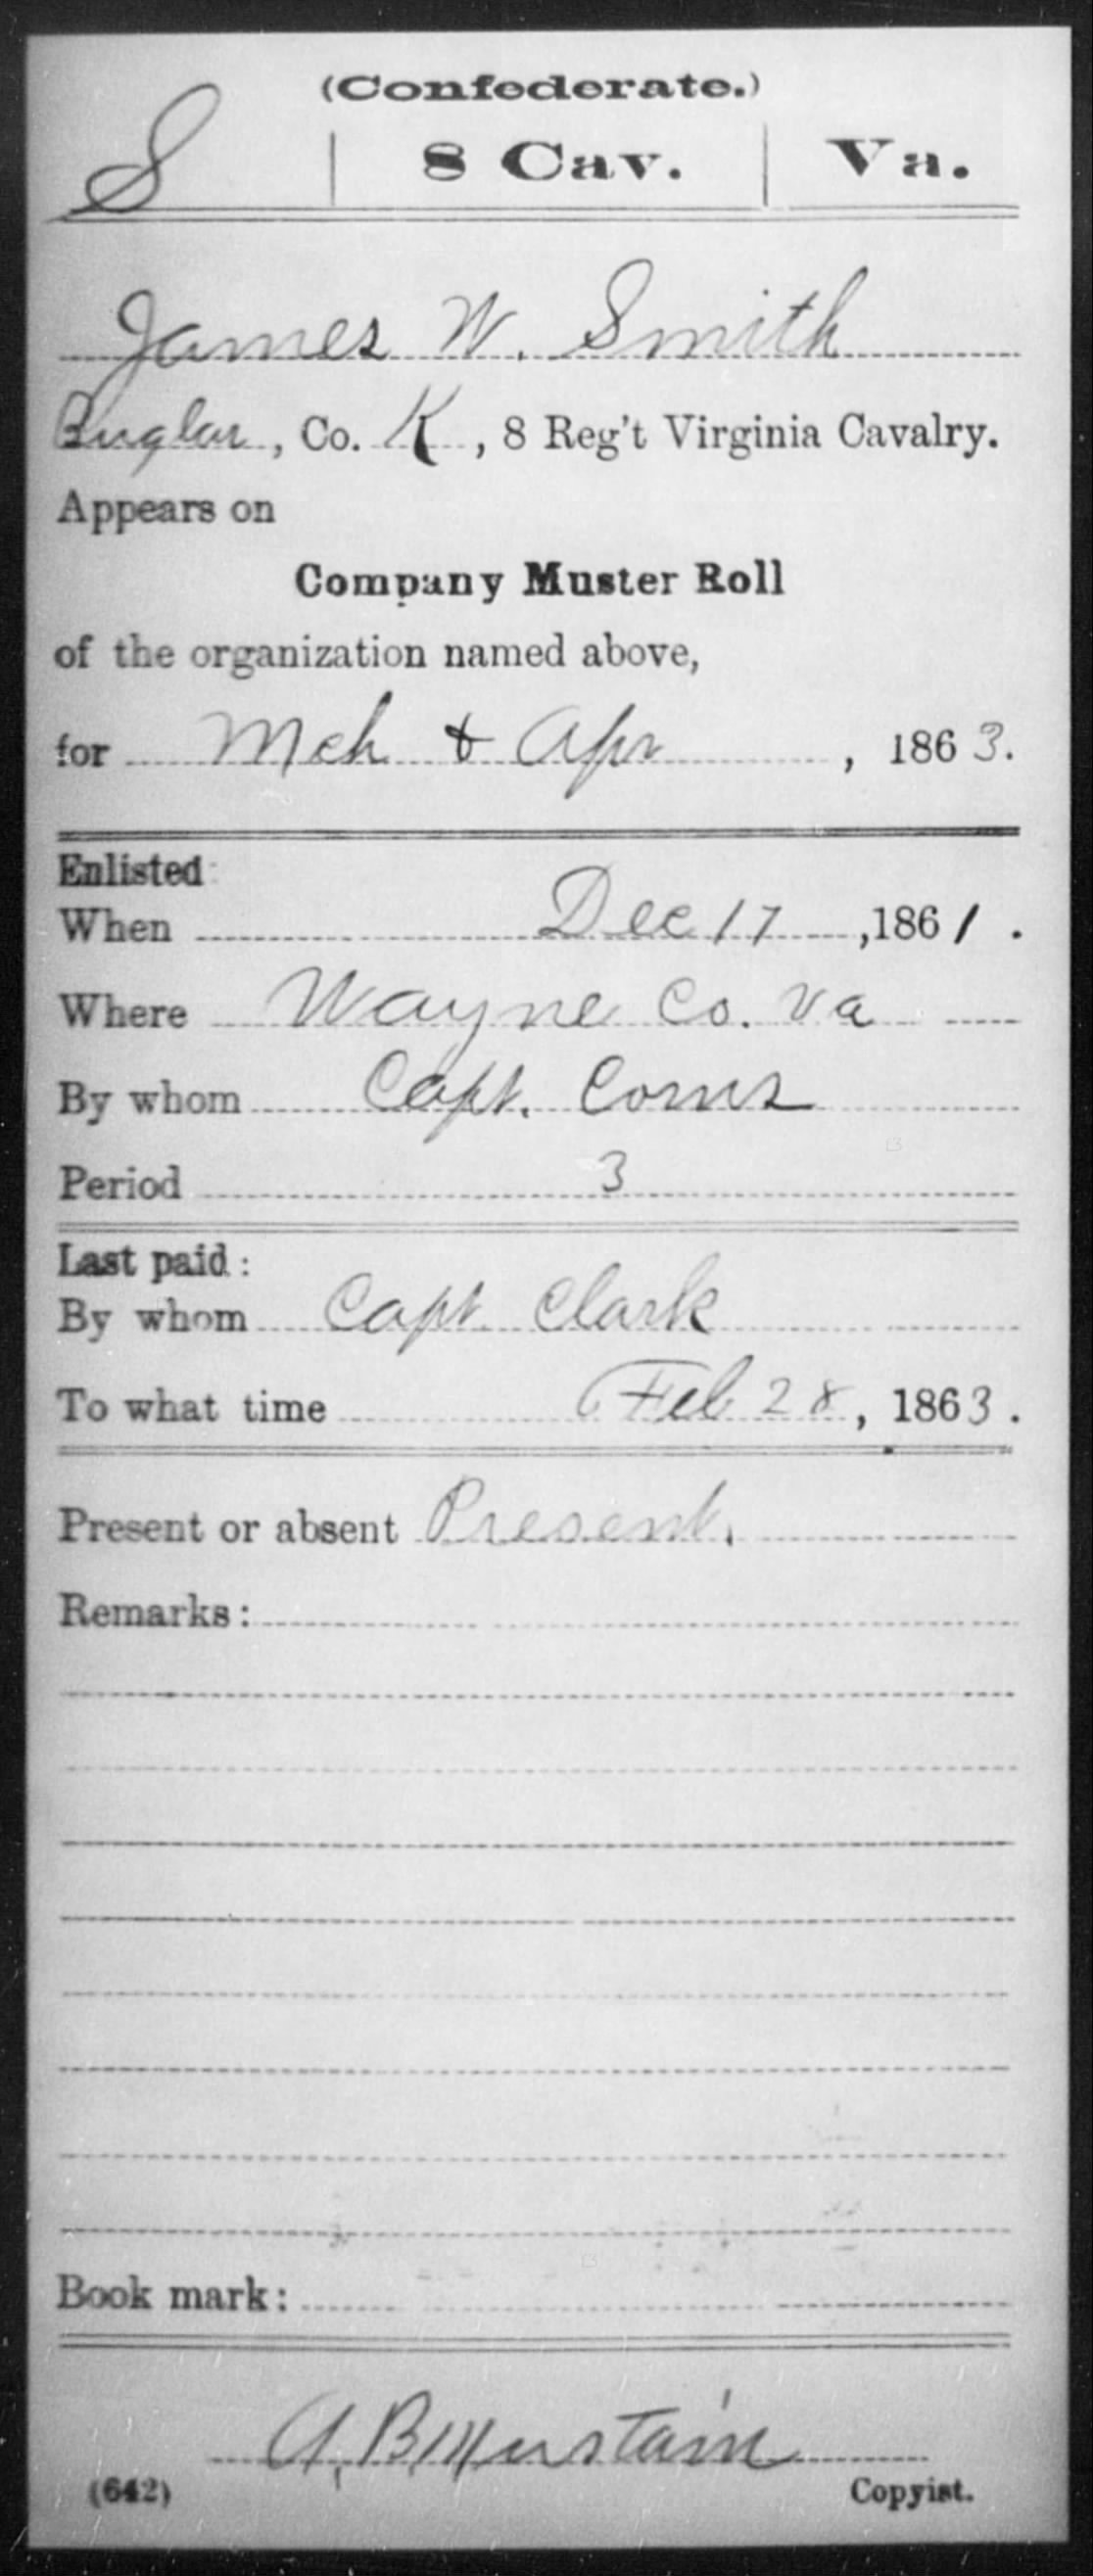 (Confederate.)
S | 8 Cav. | Va.
James W. Smith
Buglar, Co. K, 8 Reg't Virginia Cavalry.
Appears on
Company Muster Roll
of the organization named above,
for Mch & Apr, 1863.
Enlisted:
When Dec 17, 1861.
Where Wayne Co. Va
By whom Capt. Corns
Period 3
Last paid:
By whom Capt Clark
To what time Feb 28, 1863.
Present or absent Present.
Remarks:
Book mark:
A. B. Mustain
(642) Copyist.